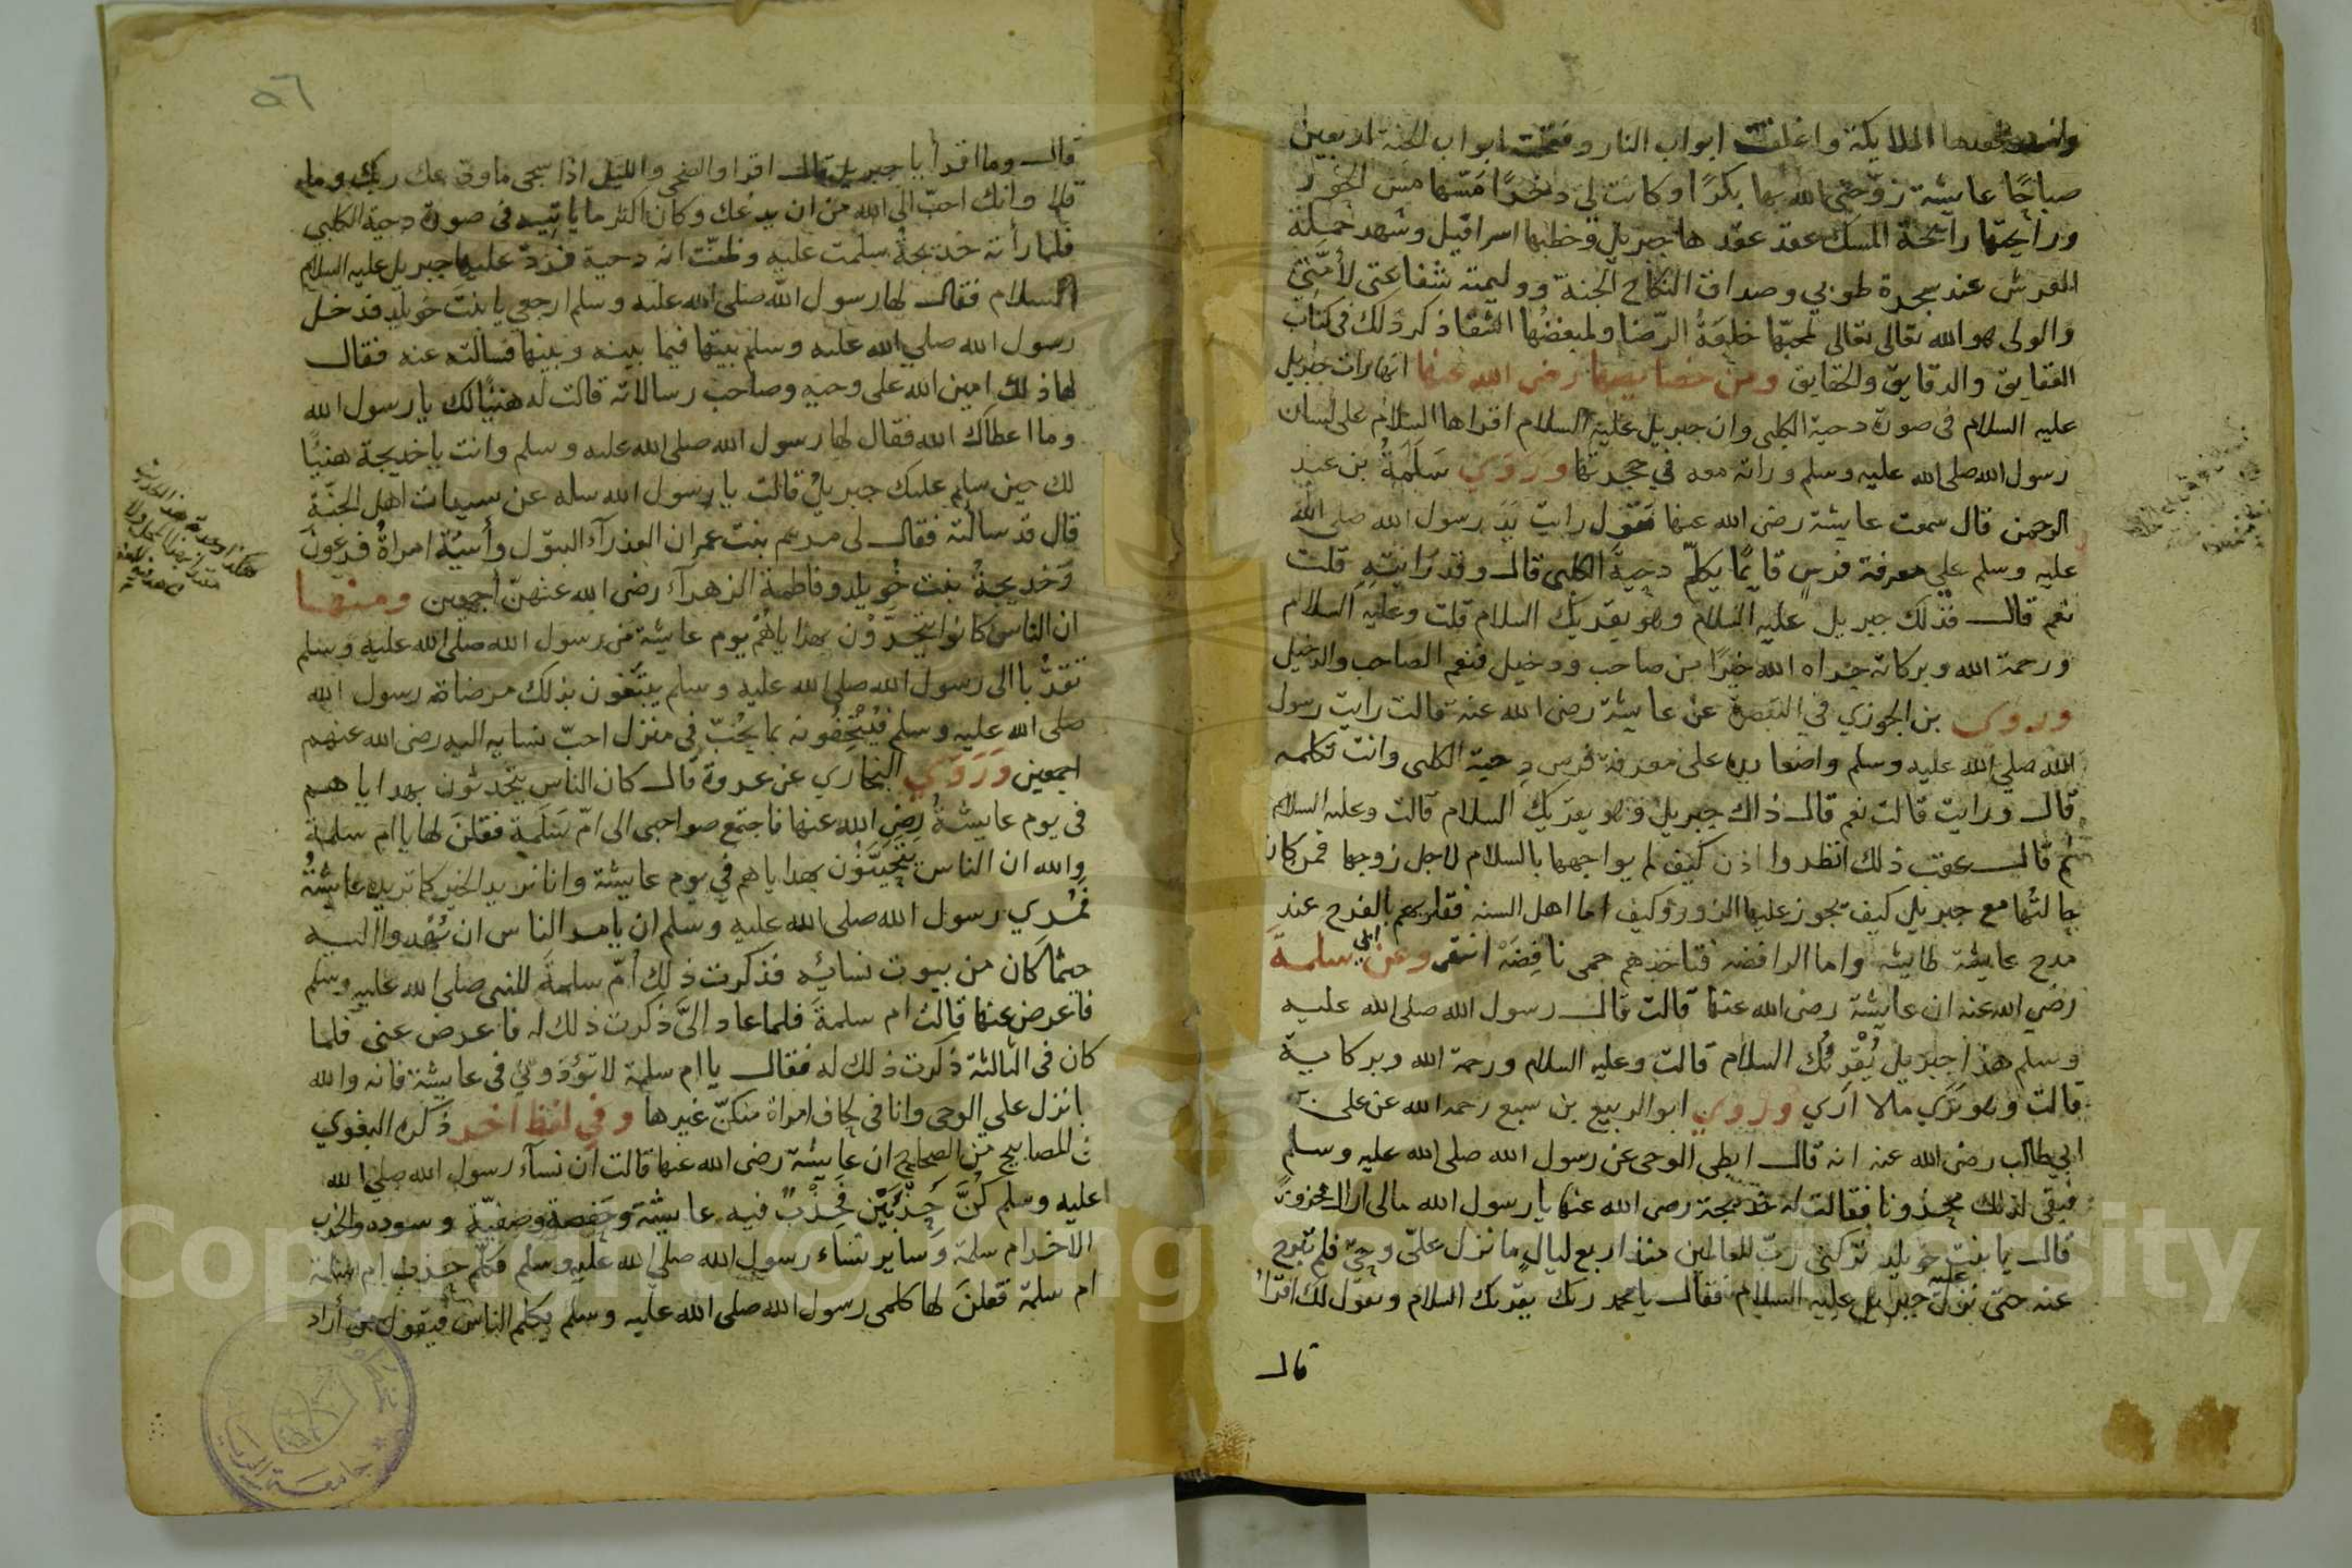 الملايكة واغلقت ابواب النار وفتحت ابواب الجنة اربعين
صباحًا عايشة زوّجني الله بها بكرًا وكانت لي دخرًا مسّها مس الحور
ورايحتها رآيحة المسك عقد عقدها جبريل وخطبها اسرافيل وشهد حملة
العرش عند سجرة طوبي وصداق النكاح الجنة ووليمته شفاعتى لأمّتي
والولى هو الله تعالى تعالى لمحبّها خلعَةُ الرّضا ولمبغضُها الشقا ذكر ذلك فى كتاب
الفقايق والدقايق والحقايق ومن خصايصها رضى الله عنها انها رات جبريل
عليه السلام فى صورة دحية الكلبى وان جبريل عليه السلام اقراها السلام على لسان
رسول الله صلى الله عليه وسلم وراته معه في حجرتها ورَوَي سَلَمَةُ بن عبد
الرحمن قال سمعت عايشة رضى الله عنها تقول رايت يَدَ رسول الله صلى الله
عليه وسلم علي معرفة فرسٍ قايمًا يكلّم دحيةَ الكلبى قال وقد رايتِهِ قلت
نعم قال فذلك جبريل عليه السلام وهو يقريك السلام قلت وعليه السلام
ورحمة الله وبركاته جزاه الله خيرًا من صاحب ودخيل فنعم الصاحب والدخيل
وروى بن الجوزي في التبصرة عن عايشة رضى الله عنه قالت رايت رسول
الله صلي الله عليه وسلم واضعا يده على معرفة فرس دِحية الكلبى وانت تكلمه
قال ورايت قالت نعم قال ذاك جبريل وهو يقريك السلام قالت وعليه السلام
ثم قال عقب ذلك انظروا اذن كيف لم يواجهها بالسلام لاجل زوجها فمن كان
حالتُها مع جبريل كيف يجوز عليها الزور وكيف اما اهل السنه فقلوبهم بالفرح عند
مدح عايشة طايشه واما الرافضه فتاخذهم حمى نافِضَة انتهى وعن ابي سلمة
رضي الله عنه ان عايشة رضى الله عنها قالت قال رسول الله صلى الله عليه
وسلم هذا جبريل يُقْرِئُك السلام قالت وعليه السلام ورحمة الله وبركاته
قالت وهو يَرَي مالا ارَي وروي ابو الربيع بن سبع رحمه الله عن على
ابي طالب رضى الله عنه انه قال ابطي الوحى عن رسول الله صلى الله عليه وسلم
فبقى لذلك محزونا فقالت له خديجة رضى الله عنها يا رسول الله مالى اراك محزونًا
قال يا بنت خويلد تركنى ربّ العالمين منذ اربع ليالٍ ما نزل علىّ وحيٌ فلم تبرح
عنه حتى نزل عليه جبرايل عليه السلام فقال يا محمد ربك يقريك السلام ويقول لك اقرأ
قال
٥٦
قال وما اقرأ يا جبريل قال اقرا والضحى والليل اذا سجى ما ودعك ربك وما
قلا وانك احبّ الى الله من ان يدعك وكان اكثر ما ياتيه فى صورة دحية الكلبي
فلما رأته خديجةُ سلمت عليه وظنّت انه دحية فردّ عليها جبريل عليه السلام
السلام فقال لها رسول الله صلى الله عليه وسلم ارجعي يا بنتَ خويلد فدخل
رسول الله صلي الله عليه وسلم بيتها فيما بينه وبينها فسالته عنه فقال
لها ذلك امين الله على وحيه وصاحب رسالاته قالت له هنيًا لك يا رسول الله
وما اعطاك الله فقال لها رسول الله صلى الله عليه وسلم وانت يا خديجة هنيًا
لك حين سلم عليك جبريلُ قالت يا رسول الله سله عن سيدات اهل الجنّة
قال قد سالته فقال لى مريم بنت عمران العذرآء البتول وأسيَة امراةُ فرعون
وَخديجةُ بنت خُويلد وفاطمة الزهرآء رضى الله عنهنّ اجمعين ومنها
ان الناس كانوا يتحرَّوْن بهداياهُمْ يوم عايشة من رسول الله صلى الله عليه وسلم
تقرُّبا الى رسول الله صلى الله عليه وسلم يبتغون بذلك مرضاة رسول الله
صلى الله عليه وسلم فيُتْحِفُونه بما يحُبّ في منزل احبّ نسايه اليه رضى الله عنهم
اجمعين وَرَوَي البخاري عن عروة قال كان الناس يتحرون بهداياهم
فى يوم عايشةُ رضِى الله عنها فاجتمع صواحبى الى امّ سَلَمة فقلنَ لها يا ام سلمة
والله ان الناس يتحرَّوْن بهداياهم في يوم عايشة وانا نريد الخير كما تريده عايشةُ
فمُري رسول الله صلى الله عليه وسلم ان يامر الناس ان يُهْدوا اليه
حيثما كان من بيوت نسائِه فذكرت ذلك أمّ سلمة للنبى صلي الله عليه وسلم
فاعرض عنها قالت ام سلمةَ فلما عاد إلىَّ ذكرت ذلك له فاعرض عنى فلما
كان فى الثالثة ذكرت ذلك له فقال يا ام سلمة لا تؤذوني فى عايشة فانه والله
ما نزل علي الوحى وانا فى لحاف امراة منكنّ غيرها وفي لفظ اخر ذكره البغوي
في المصابيح من الصحاح ان عايشة رضى الله عنها قالت ان نسآء رسول الله صلي الله
عليه وسلم كُنَّ حِزْبَيْن فَحِزْبٌ فيه عايشة وحفصة وصفيّة وسوده والحزب
الآخر ام سلمة وَساير نساء رسول الله صلي الله عليه وسلم فكلّم حزب ام سلمة
ام سلمة فقلنَ لها كلمى رسول الله صلى الله عليه وسلم يكلم الناس فيقول من أراد